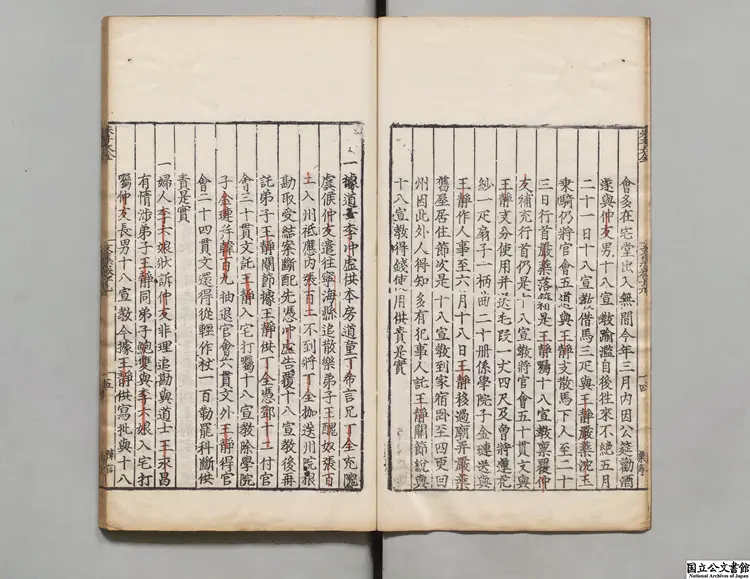 會多在宅堂出入無間今年三月內因公筵勸酒
遂與仲友男十八宣教踰濫自後往來不絕五月
二十一日十八宣教借馬三疋與王靜嚴蘂沈王
乘騎仍將官會五道與王靜支散馬下人至二十
三日行首嚴蘂落籍是王靜囑十八宣教稟覆仲
友補充行首仍是十八宣教將官會五十貫文與
王靜支分使用并送毛段一丈四尺及曾將瀼花
紗一疋扇子一柄曲二十冊係學院子金璉送與
王靜作人事至六月十八日王靜移過廟弄嚴蘂
舊屋居住節次是十八宣教到家宿臥至四更回
州因此外人得知多有犯事人託王靜關節說與
十八宣教得錢使用供責是實
一據道士李冲虛供本房道童丁希言兄丁全充
虞候仲友遣往寧海縣追散樂弟子王醜奴張百
二入州祗應內張百二不到將丁全枷送州院根
勘取受結案斷配先憑冲虛告覆十八宣教後再
託弟子王靜關節據王靜供丁全憑鄧十二付官
會三十貫文託王靜入宅打囑十八宣教除學院
子金璉并韓百九抽退官會六貫文外王靜得官
會二十四貫文還得從輕作杖一百勒罷科斷供
責是實
一婦人李六娘狀訴仲友非理追勘與道士王永昌
有情涉弟子王靜同弟子鮑雙與李六娘入宅打
囑仲友長男十八宣教今據王靜供寫批與十八
国立公文書館
National Archives of Japan